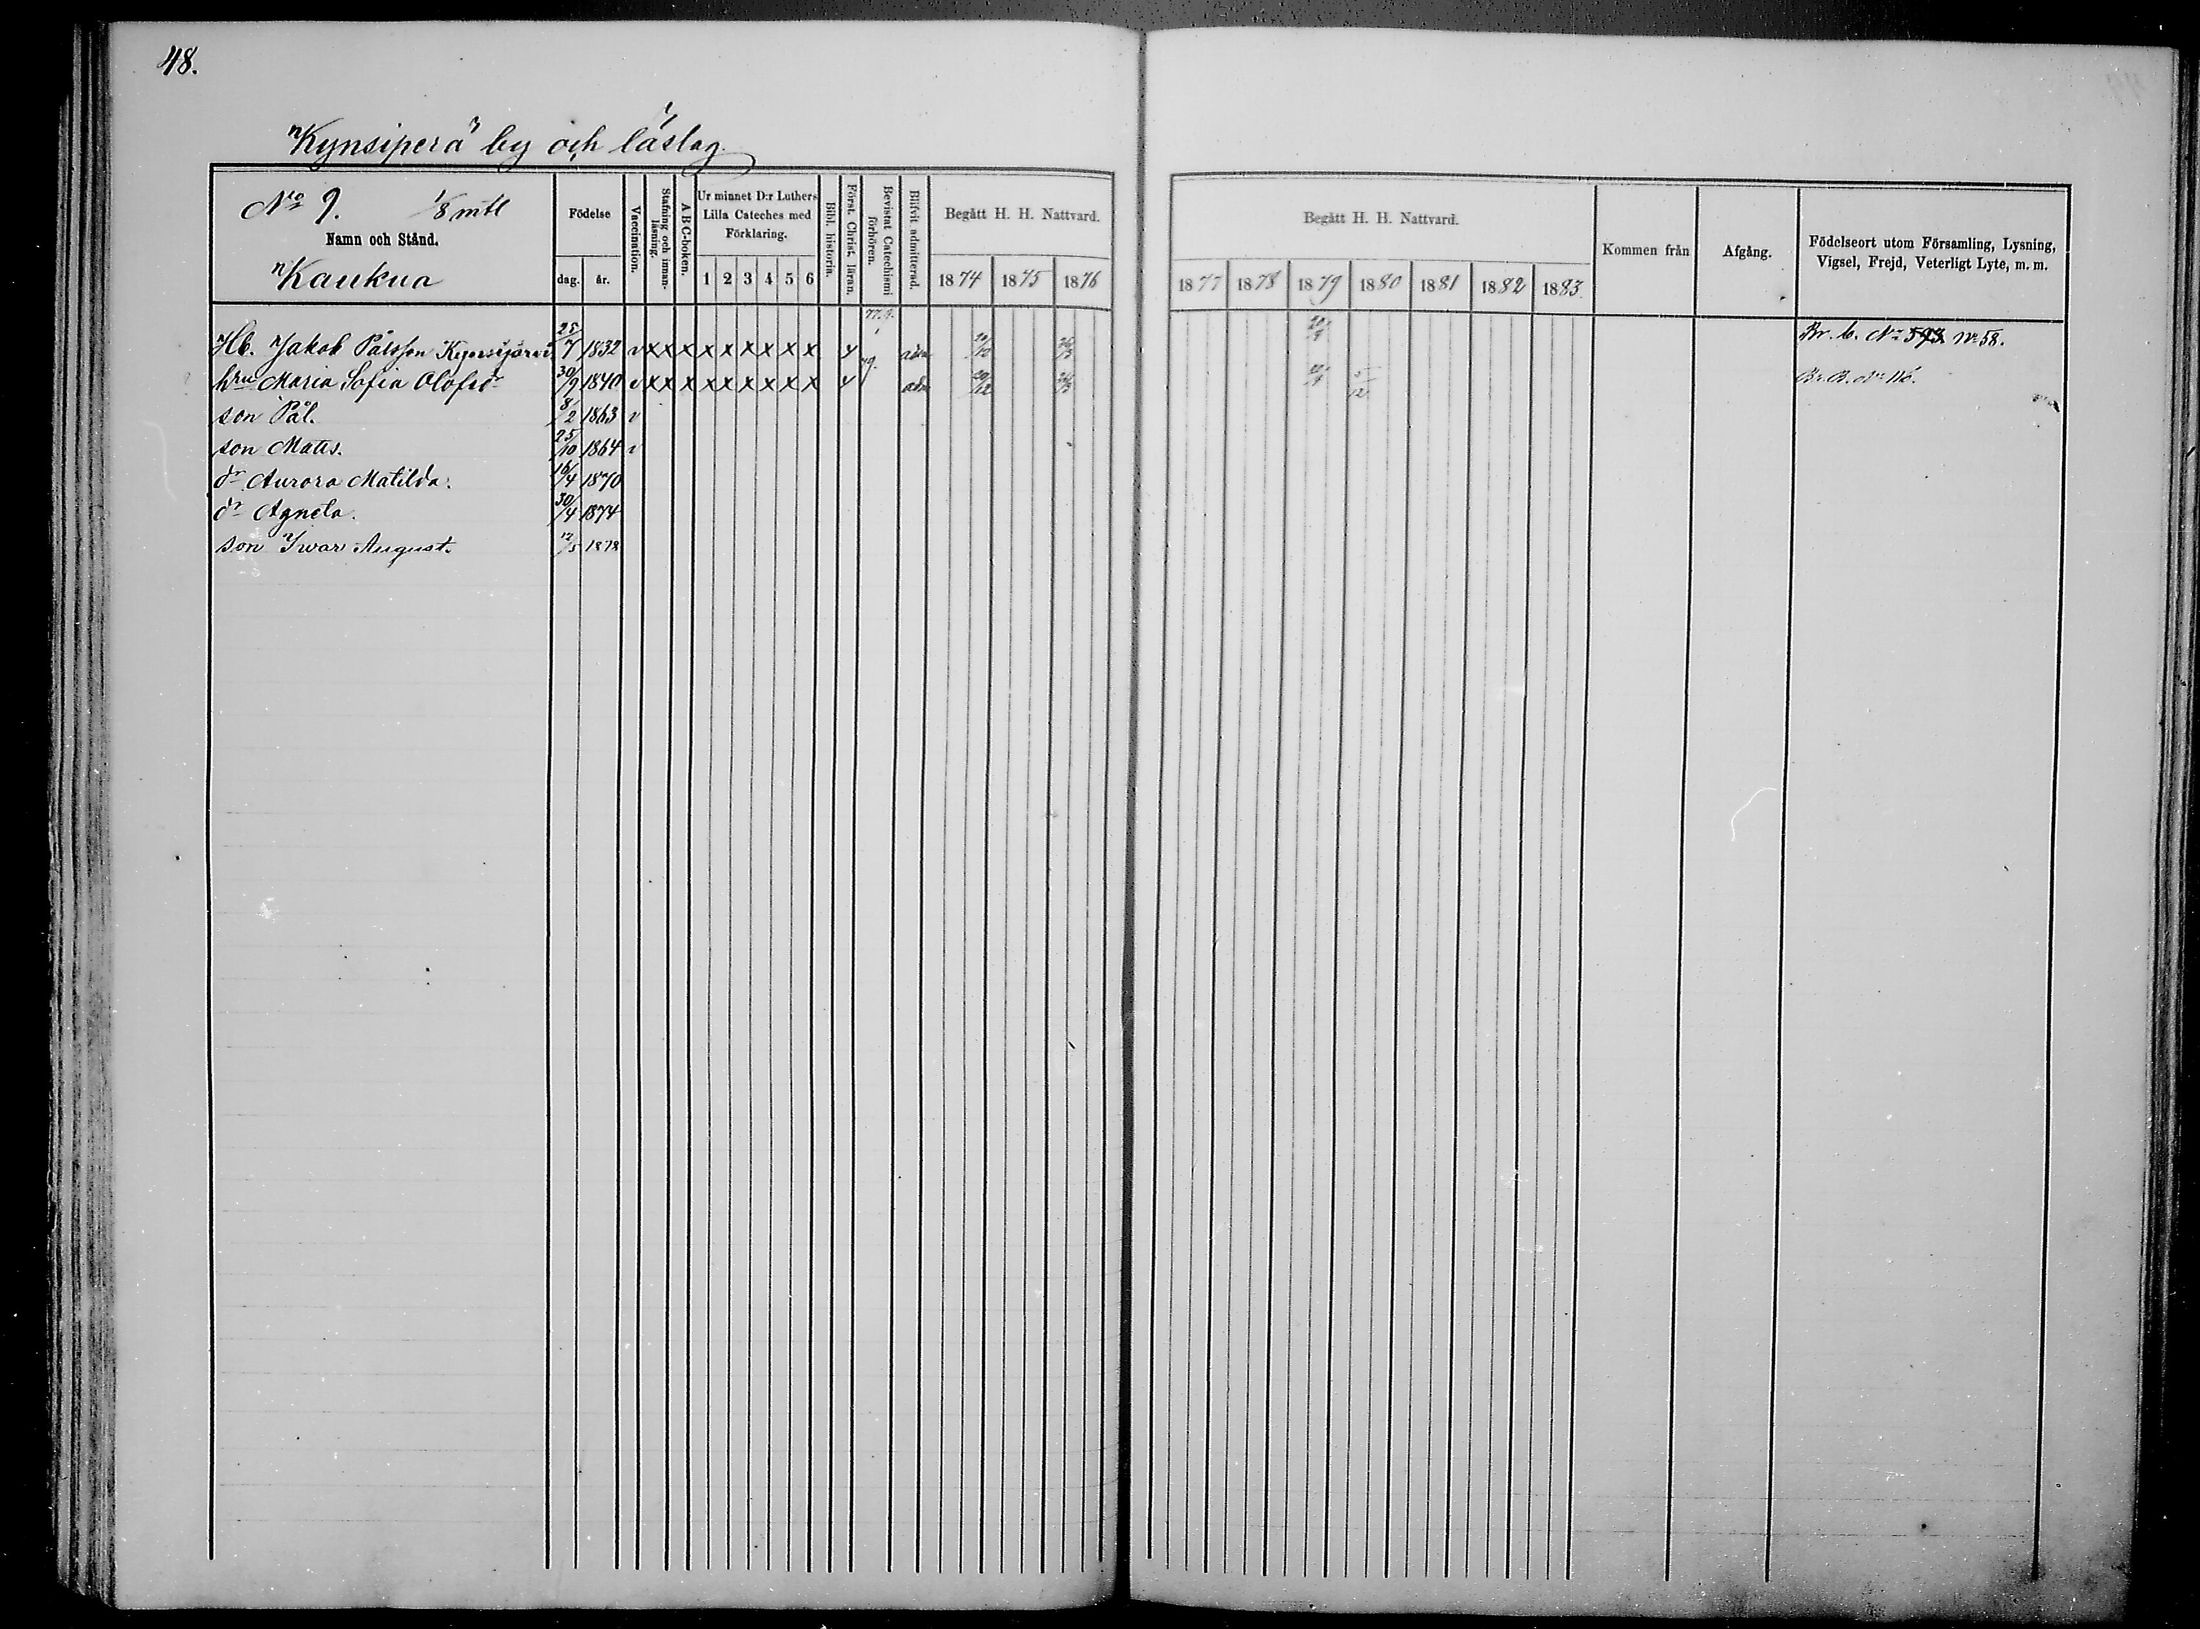 48.
"Kynsiperä" by och läslag.
No 9. 1/8 mtl
Namn och Stånd.
"Kaukua
Födelse
dag. år.
Vaccination.
Stafning och innanläsning.
A B C-boken.
Ur minnet D:r Luthers Lilla Cateches med Förklaring.
1 2 3 4 5 6
Bibl. historia.
Först. Christ. läran.
Bevistat Catechismi förhören.
Blifvit admitterad.
Begått H. H. Nattvard.
1874 1875 1876
Begått H. H. Nattvard.
1877 1878 1879 1880 1881 1882 1883
Kommen från
Afgång.
Födelseort utom Församling, Lysning, Vigsel, Frejd, Veterligt Lyte, m. m.
Hb. Jakob Pålsson 25/7 1832 v x x x x x x x x x 4 Nr 58.
hru Maria Sofia Olofsdr 30/9 1840 v x x x x x x x x x 4 adm 20/12 Br. B. Nr 116.
son Pål. 8/2 1863 v
son Matts. 25/10 1864 v
dr Aurora Matilda. 16/4 1870
dr Agneta. 30/4 1874
son Iwar August. 12/5 1878